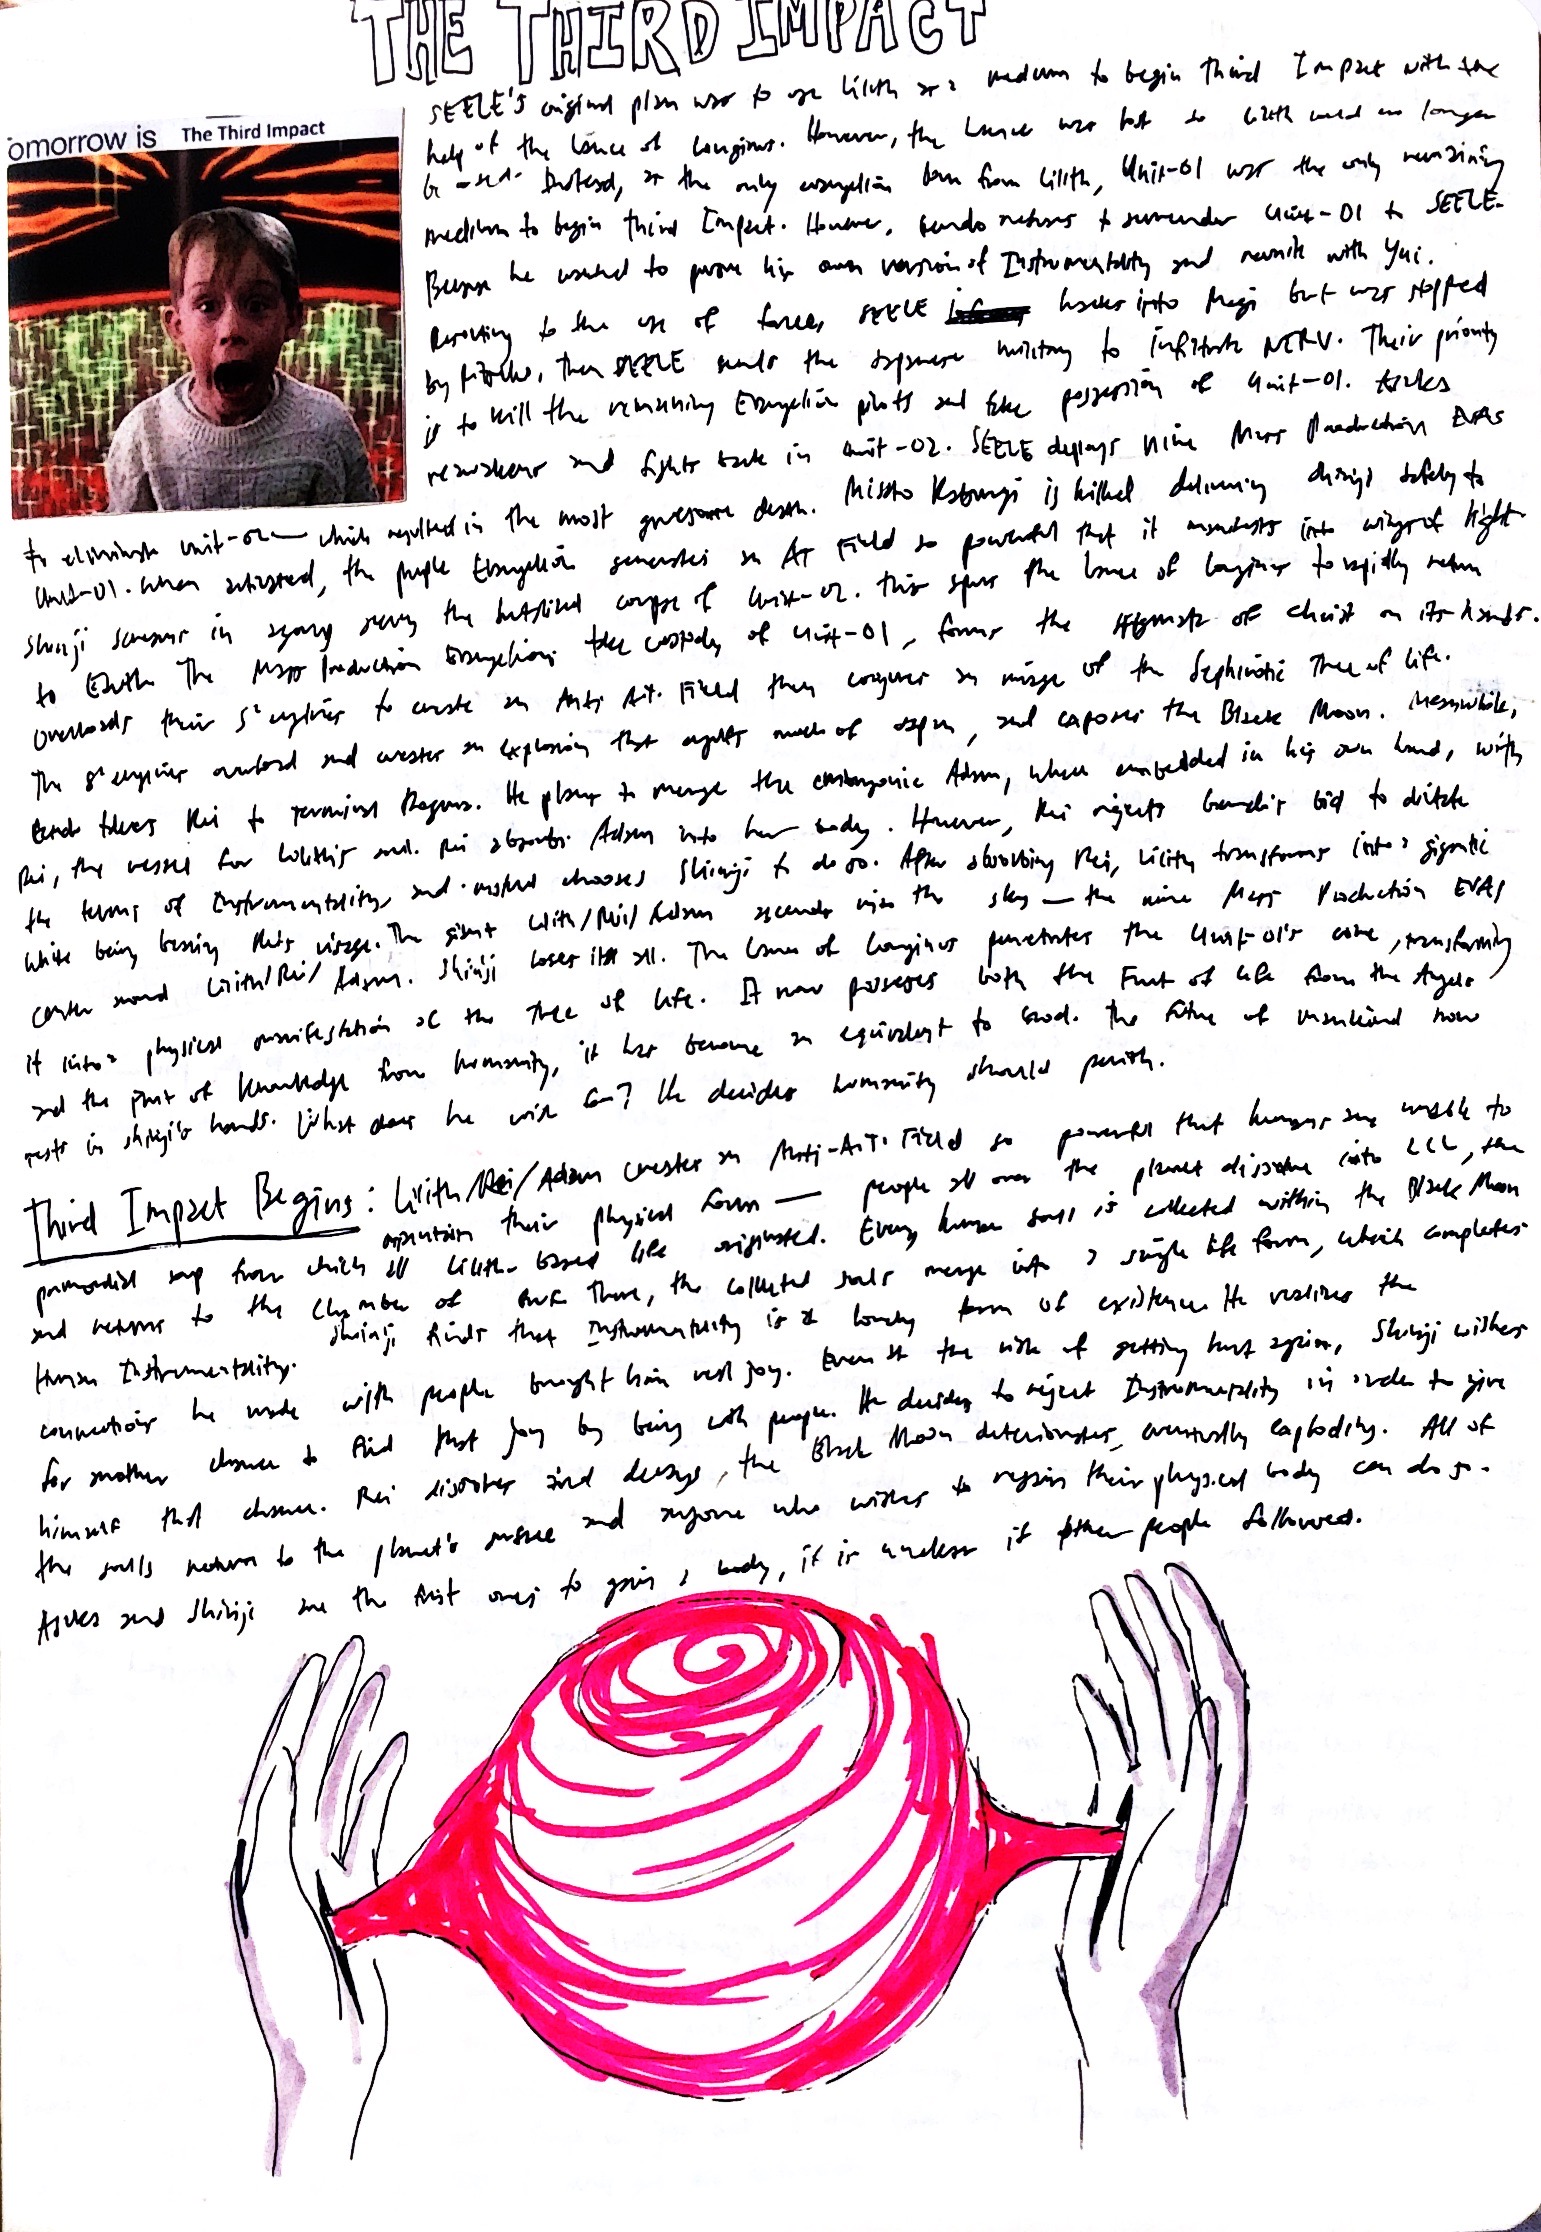 THE THIRD IMPACT
omorrow is The Third Impact
SEELE'S original plan was to use Lilith as a medium to begin Third Impact with the
help of the Lance of Longinus. However, the Lance was lost so Lilith could no longer
be used. Instead, as the only evangelion born from Lilith, Unit-01 was the only remaining
medium to begin Third Impact. However, Gendo refuses to surrender Unit-01 to SEELE.
Because he wanted to pursue his own version of Instrumentality and reunite with Yui.
Resorting to the use of forces, SEELE hacks into Magi but was stopped
by Ritsuko, then SEELE sends the Japanese military to infiltrate NERV. Their priority
is to kill the remaining Evangelion pilots and take possession of Unit-01. Asuka
reawakens and fights back in Unit-02. SEELE deploys nine Mass Production EVAs
to eliminate Unit-02 — which resulted in the most gruesome death. Misato Katsuragi is killed delivering Shinji safely to
Unit-01. When activated, the purple Evangelion generates an AT Field so powerful that it manifests into wings of light.
Shinji screams in agony seeing the brutalized corpse of Unit-02. This spurs the Lance of Longinus to rapidly return
to Earth. The Mass Production Evangelions take custody of Unit-01, forms the stigmata of Christ on its hands.
Overloads their S² engines to create an Anti A.T. Field then conjures an image of the Sephirotic Tree of life.
The S² engines overload and creates an explosion that engulfs much of Japan, and exposes the Black Moon. Meanwhile,
Gendo takes Rei to Terminal Dogma. He plans to merge the embryonic Adam, when embedded in his own hand, with
Rei, the vessel for Lilith's soul. Rei absorbs Adam into her body. However, Rei rejects Gendo's bid to dictate
the terms of Instrumentality and instead chooses Shinji to do so. After absorbing Rei, Lilith transforms into a gigantic
white being bearing Rei's visage. The giant Lilith/Rei/Adam ascends into the sky — the nine Mass Production EVAs
center around Lilith/Rei/Adam. Shinji loses it all. The Lance of Longinus penetrates the Unit-01's core, transforming
it into a physical manifestation of the Tree of life. It now possesses both the Fruit of life from the Angels
and the fruit of knowledge from humanity, it has become an equivalent to God. The future of mankind now
rests in Shinji's hands. What does he wish for? He decides humanity should perish.
Third Impact Begins: Lilith/Rei/Adam creates an Anti-A.T. Field so powerful that humans are unable to
maintain their physical form — people all over the planet dissolve into LCL, the
primordial soup from which all Lilith-based life originated. Every human soul is collected within the Black Moon
and returns to the Chamber of Guf. There, the collected souls merge into a single life form, which completes
Human Instrumentality. Shinji finds that Instrumentality is a lonely form of existence. He realizes the
connections he made with people brought him real joy. Even at the risk of getting hurt again, Shinji wishes
for another chance to find that joy by being with people. He decides to reject Instrumentality in order to give
himself that chance. Rei dissolves and decays, the Black Moon deteriorates, eventually exploding. All of
the souls return to the planet's surface and anyone who wishes to regain their physical body can do so.
Asuka and Shinji are the first ones to gain a body, it is unclear if other people followed.